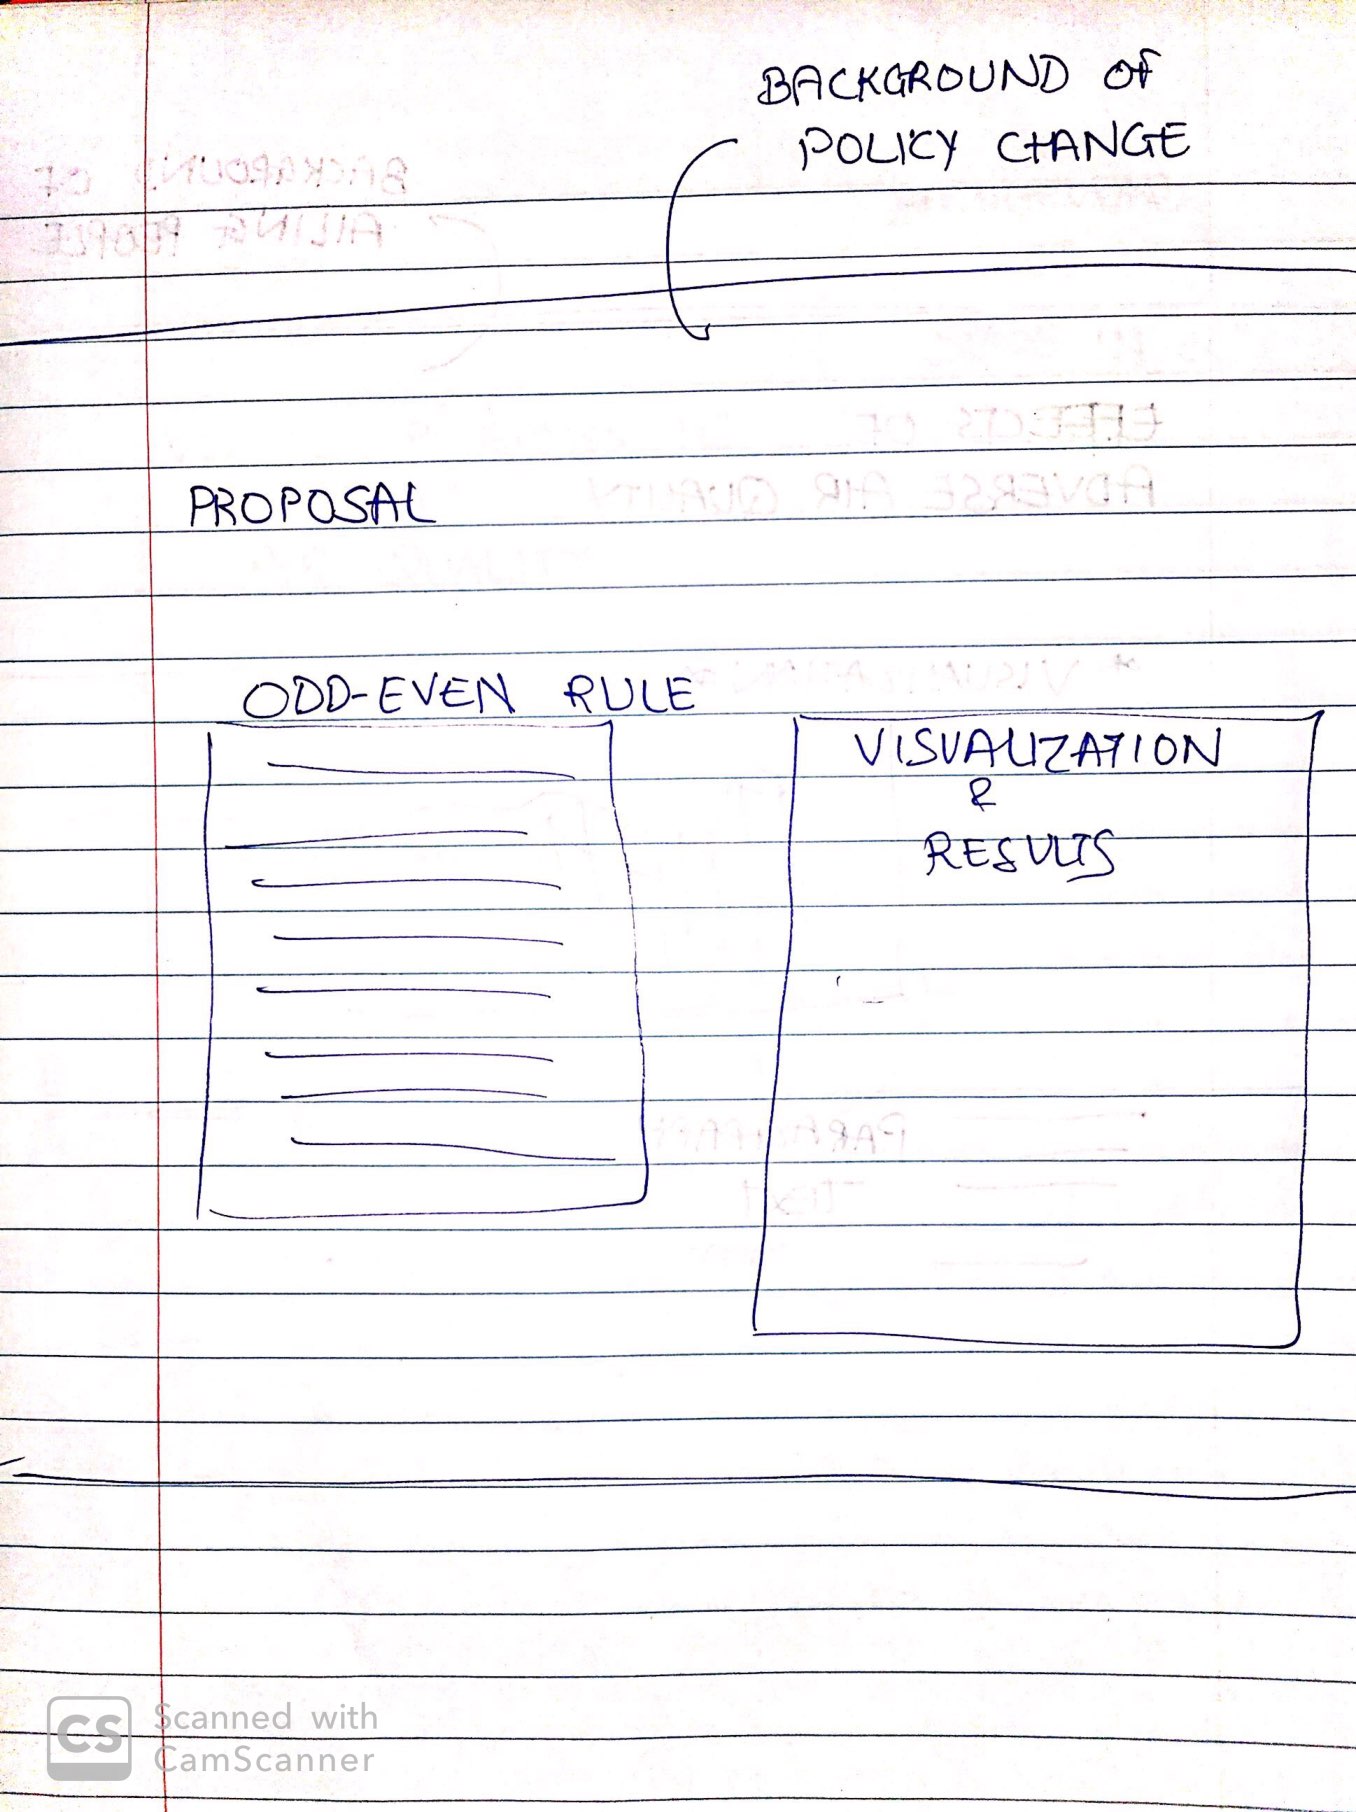 BACKGROUND OF
POLICY CHANGE
PROPOSAL
ODD-EVEN RULE
VISUALIZATION
&
RESULTS
CS
Scanned with
CamScanner